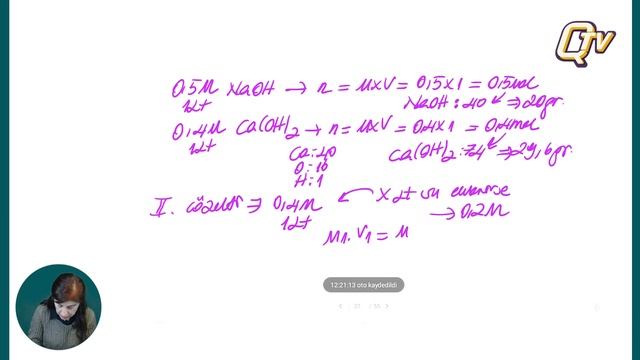 QTV
0,5M NaOH → n = MxV = 0,5x1 = 0,5mol
1Lt NaOH: 40 ⇒ 20gr.
0,4M Ca(OH)2 → n = MxV = 0,4x1 = 0,4mol
1Lt Ca:40 Ca(OH)2:74 ⇒ 29,6gr.
O:16
H:1
II. çözelti ⇒ 0,4M ← X Lt su eklenirse
1Lt → 0,2M
M1.V1 = M
12:21:13 oto kaydedildi